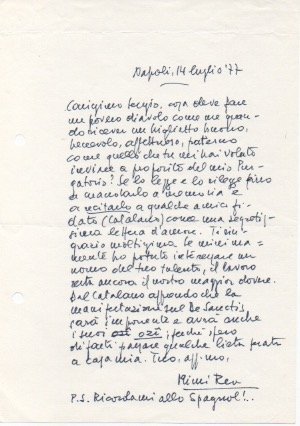 Napoli, 14 luglio '77
Carissimo Sergio, cosa deve fare
un povero diavolo come me quan-
do riceve un biglietto buono,
benevolo, affettuoso, paterno
come quello che tu mi hai voluto
inviare a proposito del mio Pur-
gatorio? Se lo legge e lo rilegge fino
a mandarlo a memoria e
a recitarlo a qualche amico fi-
dato (Catalano) come una segretis-
sima lettera d'amore. Ti rin-
grazio moltissimo. Se minima=
mente ho potuto interessare un
uomo del tuo talento, il lavoro
resta ancora il nostro maggior dovere.
Dal Catalano apprendo che la
manifestazione sul De Sanctis
sarà imponente e avrà anche
i suoi ozi; sicché spero
di farti passare qualche lieta serata
a casa mia. Tuo, aff.mo,
Mimì Rea
P.S. Ricordami allo Spagnol!..